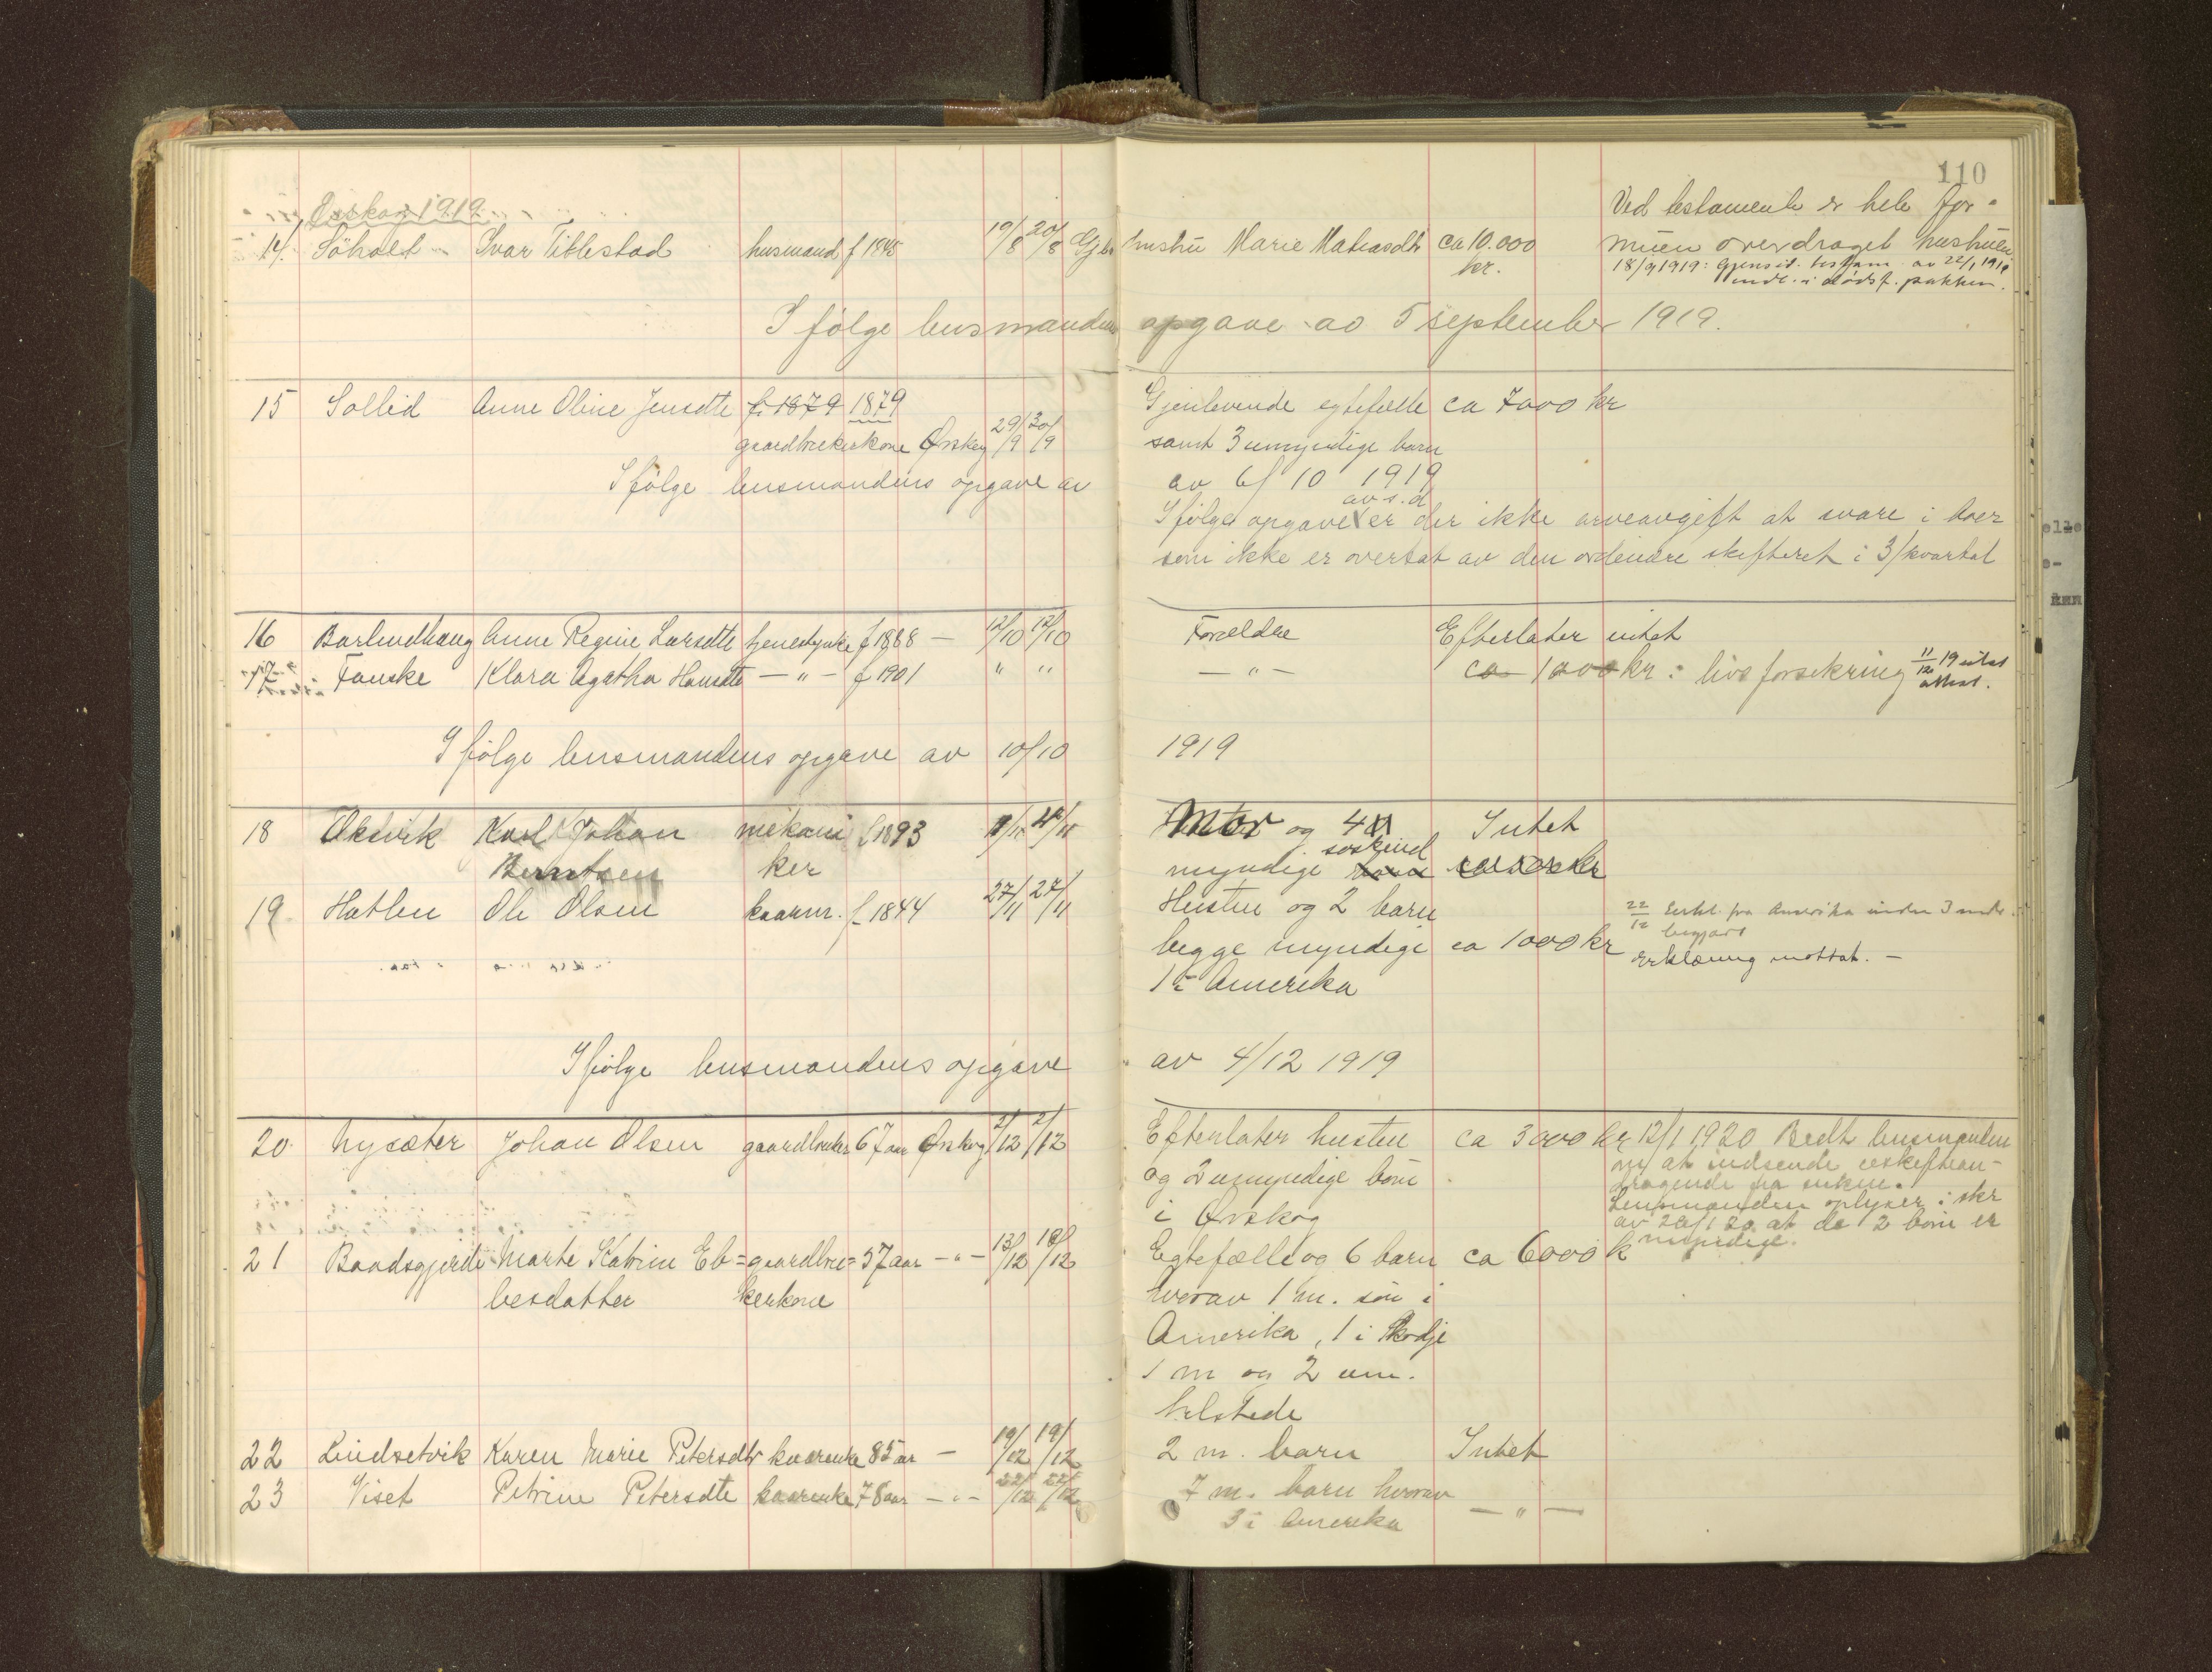 110
Ørskog 1919
14. Söholt Ivar Tiblestad husmand f 1845 19/8 20/8 Gjl. hustru Marie Matiasdtr ca 10.000 kr.
Ved testamente er hele for-
muen overdraget hustruen
18/9 1919: Gjensid. testam. av 22/1 1919
indl. i dødsf. pakken.
I følge lensmandens opgave av 5 september 1919.
15 Sollid Anne Oline Jensdtr f. 1879 1879
gaardbrukerkone Ørskog 29/9 30/9
Gjenlevende egtefælle ca 7000 kr
samt 3 umyndige barn
I følge lensmandens opgave av av 6/10 1919
av s. d.
I følge opgave er der ikke arveavgift at svare i boer
som ikke er overtat av den ordinære skifteret i 3/kvartal
16 Barlindhaug Anne Regine Larsdtr tjenestpike f 1888 — 12/10 12/10 Forældre Efterlater intet
17 Fauske Klara Agatha Hansdtr — " — f 1901 " " — " — ca 1000 kr: livsforsikring 11/12 19 utst attest.
I følge lensmandens opgave av 10/10 1919
18 Aksvik Karl Johan mekani f 1893
Berntsen ker
Mor og 4 Intet
søskend
myndige
19 Hatlen Ole Olsen kaarm. f. 1844 27/11 27/11 Hustru og 2 barn
begge myndige ca 1000 kr
1 i Amerika
22/12 Erkl. fra Amerika inden 3 mdr.
begjært
Erklæring mottat. —
I følge lensmandens opgave av 4/12 1919
20 Nysæter Johan Olsen gaardbruker 67 aar Ørskog 2/12 2/12 Efterlater hustru ca 3000 kr
og 2 umyndige børn
i Ørskog
12/1 1920 Bedt lensmanden
om at indsende uskiftean-
dragende fra enken.
Lensmanden oplyser i skr
av 20/1 20 at de 2 børn er
myndige.
21 Baadsgjerde Marte Katrine Eb= gaardbru= 57 aar — " — 13/12 18/12 Egtefælle og 6 barn ca 6000 k
besdatter kerkone
hvorav 1 m. søn i
Amerika, 1 i Skodje
1 m og 2 um.
helstede
22 Lindsetvik Karen Marie Petersdtr kaarenke 85 aar — 19/12 19/12 2 m. barn Intet
23 Viset Petrine Petersdtr kaarenke 78 aar — " — 22/12 22/12 7 m. barn hvorav — " —
3 i Amerika